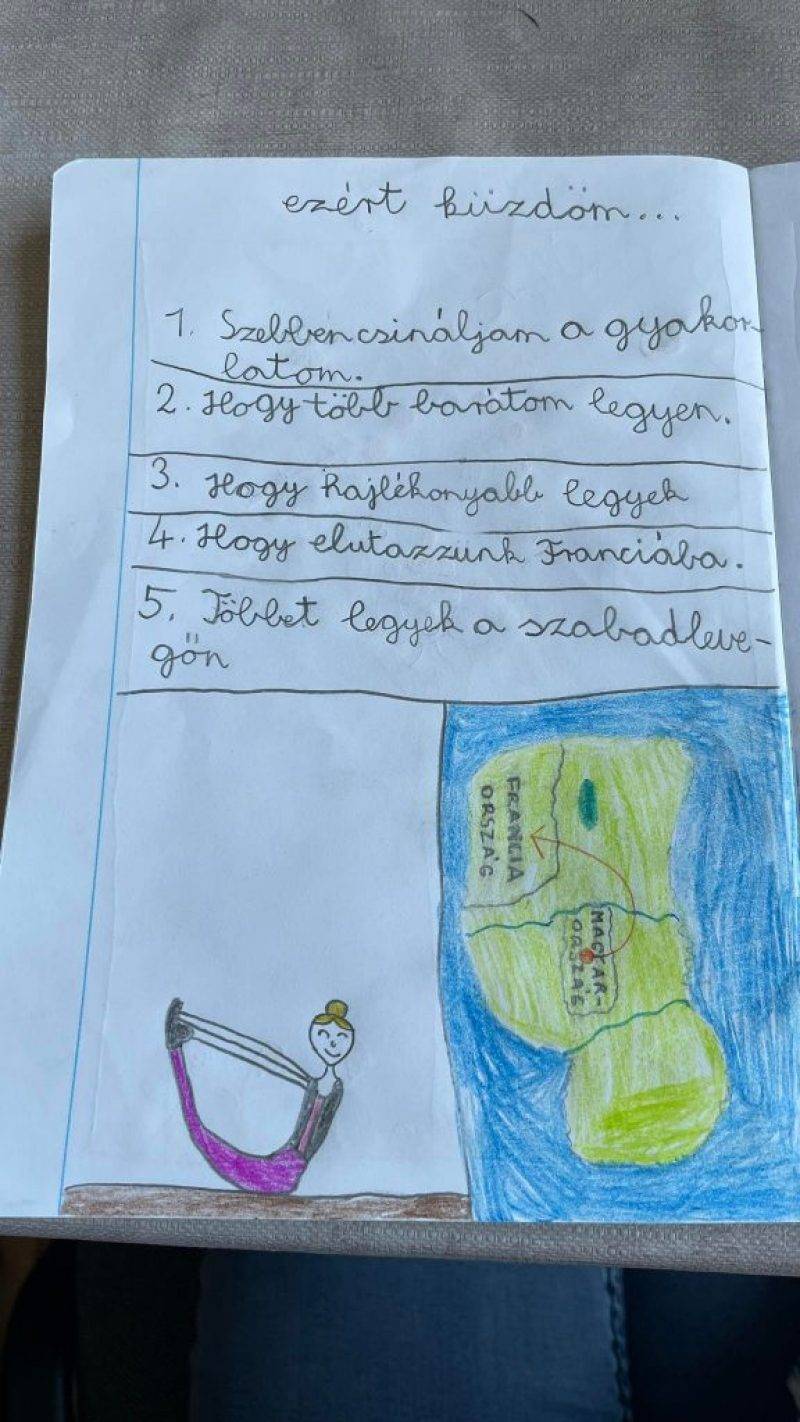 ezért küzdöm...
1. Szebben csináljam a gyakor-
latom.
2. Hogy több barátom legyen.
3. Hogy hajlékonyabb legyek
4. Hogy elutazzunk Franciába.
5. Többet legyek a szabadleve-
gőn
FRANCIA
ORSZÁG
MAGYAR-
ORSZÁG